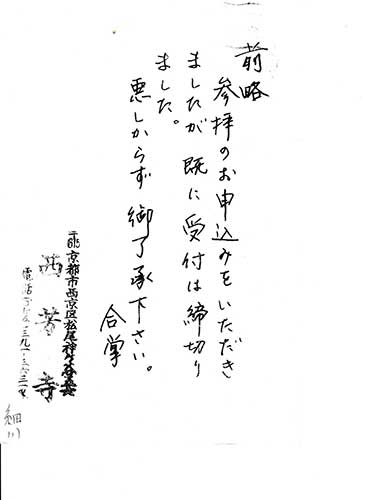 前略
参拝のお申込みをいただき
ましたが既に受付は締切り
ました。
悪しからず御了承下さい。
合掌
京都市西京区松尾神ケ谷町
西芳寺
細川